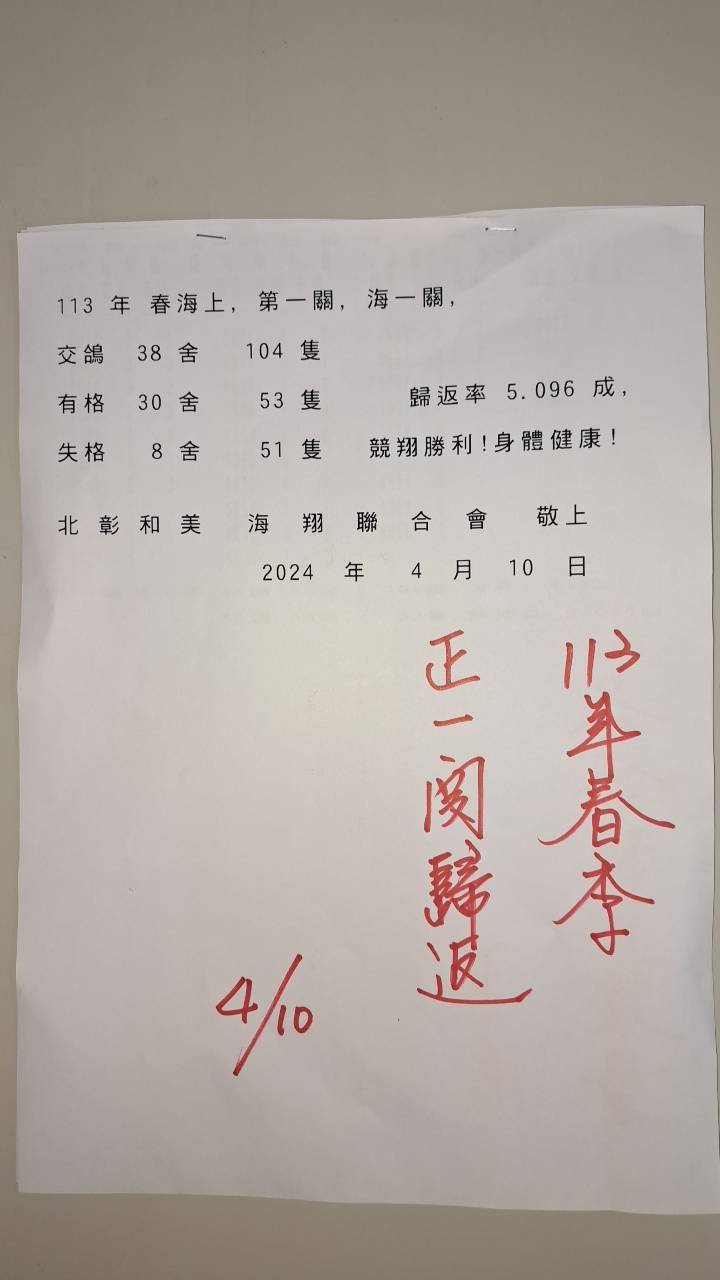 113 年 春海上, 第一關, 海一關,
交鴿 38 舍 104 隻
有格 30 舍 53 隻 歸返率 5.096 成,
失格 8 舍 51 隻 競翔勝利!身體健康!
北 彰 和 美 海 翔 聯 合 會 敬上
2024 年 4 月 10 日
113年春季
正一関歸返
4/10